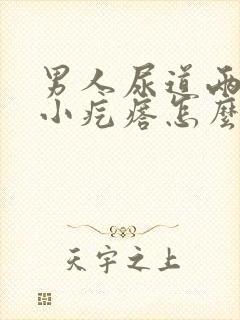 男人尿道两
小疙瘩怎麼
天宇之上